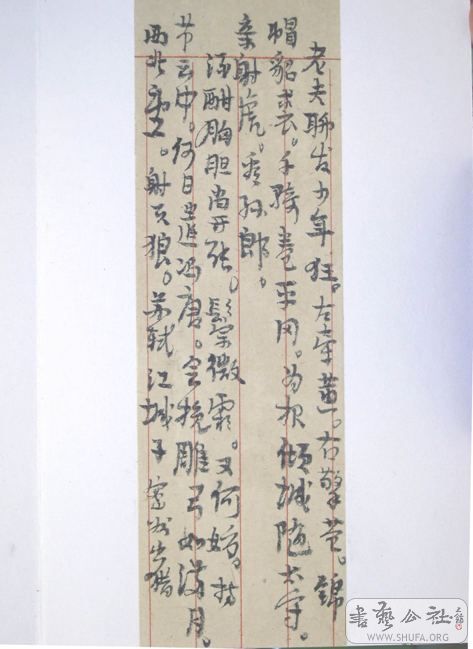 老夫聊发少年狂。左牵黄。右擎苍。锦
帽貂裘。千骑卷平冈。为报倾城随太守。
亲射虎。看孙郎。
酒酣胸胆尚开张。鬓微霜。又何妨。持
节云中。何日遣冯唐。会挽雕弓如满月。
西北望。射天狼。苏轼江城子密州出猎
書藝公社
WWW.SHUFA.ORG